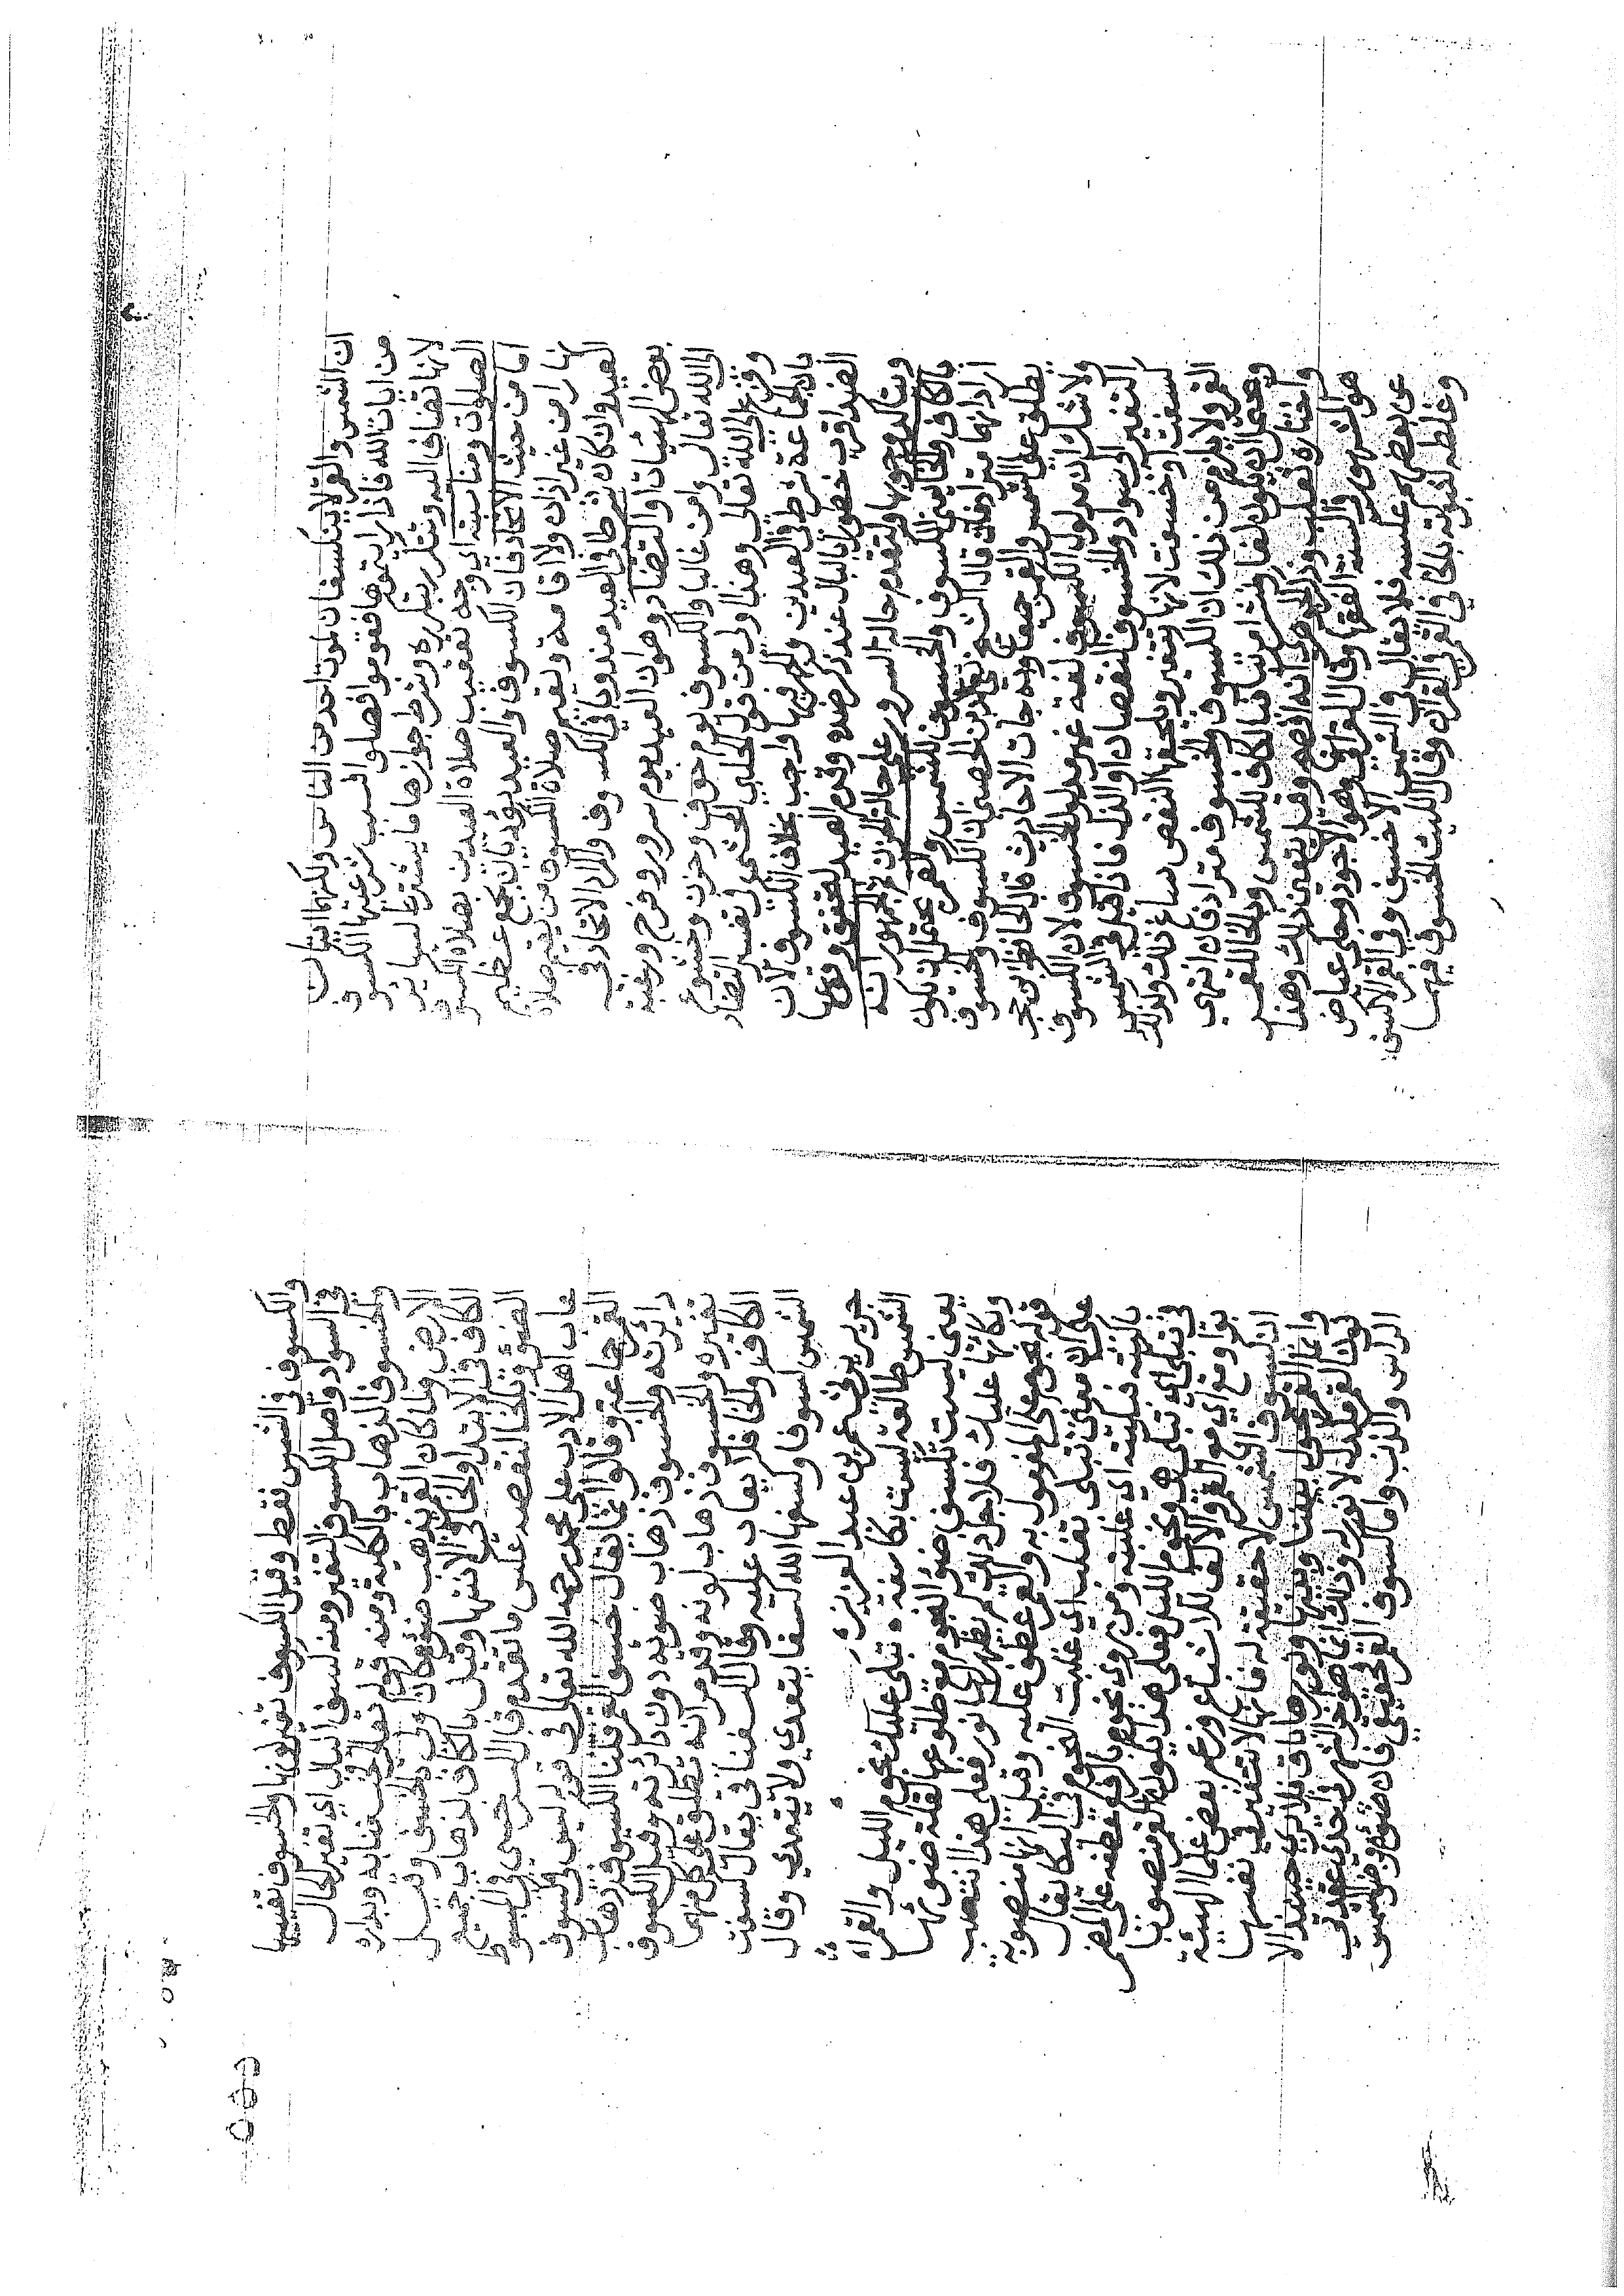 ان الشمس والقمر لا ينكسفان لموت احد من الناس ولكنهما ايتان
من ايات الله فاذا رايتموها فقوموا فصلوا السبب شرعيتها الكسوف
لانها تضاف اليه وتتكرر بتكرره وشرط جوازها ما يشترط لساير
الصلوات ومناسبته اي وجه تعقيب صلاة العيدين بصلاة الكسوف
اما من حيث الاتحاد فان الكسوف والعيد يؤديان بجمع عظيم
نهارا من غير اذان ولا اقامة صلاة الكسوف من يعتبر صلاة
العيد وان كان شرطا في العيد مندوبا في الكسوف والمراد الاتحاد في
بعض الهيئات او التضاد وهو ان العيد يوم سرور وفرح ورغبة
الى الله تعالى وامن غالبا والكسوف يوم خوف وحزن وخشوع
وفزع الى الله تعالى وهذا اولى من قول الحلبي المحشي في تفسير التضاد
بان الجماعة شرط في العيدين والجهر فيها واجب بخلاف الكسوف لان
الضد اقرب خطورا بالبال عند ذكر ضده وقدم العيد لتحقق وقوعها
ويتاكد وجوبها ولتقدم حالة السرور على حالة الحزن ثم الجمهور انه
بالكاف والخا يعني الكسوف والخسوف للشمس والقمر يحتمل ان يكون
اراد انهما مترادفان قال الشيخ تقي الدين الحصني ان الكسوف والخسوف
يطلق على الشمس والقمر جميعا وبه جات الاحاديث قال الحافظ ابن حجر
ولا شك ان مدلول الكسوف لغة غير مدلول الخسوف لان الكسوف
التغير الى سواد والخسوف النقصان او الذل فاذا قيل في الشمس
كسفت او خسفت لانها تتغير ويلحقها النقص ساغ ذلك وكذلك
القمر ولا يلزم من ذلك ان الكسوف والخسوف مترادفان انتهى
ويحتمل ان يكون لفا ونشرا مرتبا فبالكاف للشمس وبالخا للقمر
واختاره ثعلب وذكر الجوهري انه افصح وقيل يتعين ذلك وهذا
هو المشهور في السنة الفقها وقال القرافي وهو الاجود وحكى عياض
عن بعضهم عكسه فلا يقال في الشمس الا خسف وفي القمر الا كسف
وغلطه لثبوته بالخا في القمر في القران وقال الليث الخسوف فيهما
والكسوف في الشمس فقط وقيل الكسوف تغير لونها والخسوف تغييبها
في السواد واصل الكسوف التغير ومنه كسف البال اي تغير الحال
والخسوف الذهاب بالكلية ومنه قوله تعالى فخسفنا به وبداره
الارض ولما كان القمر يذهب ضوءه كان اولى بالخسوف وقيل
الكاف في الابتدا والخا في الانتها وقيل بالكاف لذهاب جميع
الضوء وبالخا لبعضه عكس ما تقدم قال السرخسي في المبسوط
عاب اهل الادب على محمد رحمه الله تعالى في قوله ليس في كسوف
القمر جماعة وقالوا انما يقال خسوف القمر قلنا الكسوف ذهاب
دايرته والخسوف ذهاب ضوئه دون دائرته وقيل الكسوف
تغيره والخسوف ذهاب لونه وقد مر انه يطلق على كل منهما
الكاف والخا فلا يعاب عليه وقال السفناقي يقال كسفت
الشمس كسوفا وكسفها الله كسفا يتعدى ولا يتعدى وقال
جرير يرثي عمر بن عبد العزيز
الشمس طالعة ليست بكاسفة ٥ تبكي عليك نجوم الليل والقمرا
يعني ليست تكسف ضوء النجوم مع طلوعها لقلة ضوئها
وبكائها عليك فلاجل ذلك لم يظهر لها نور فعلى هذا انتصب
قوله نجوم على المفعول به والقمر عطف عليه وقيل انها منصوبة
على ان معنى تبكي تغلب اي غلبت النجوم في البكا يقال
باكيته فبكيته اي غلبته ومن روى نجوم بالرفع عطفه على المضمر
في تبكي اي تبكي هي ونجوم الليل فعلى هذا يكون القمر منصوبا
بواو مع اي مع القمر والالف للاشباع وزعم بعض علما الهيئة
ان كسوف الشمس لا حقيقة له فانها لا تتغير في نفسها
وانما القمر يحول بيننا وبينها ونورها باق
الراس والذنب واما كسوف القمر فحقيقي فان ضوءه من ضوء الشمس